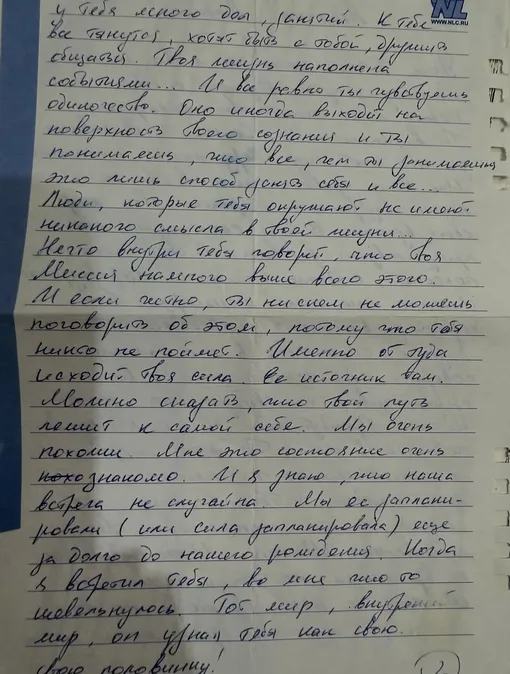 NL
WWW.NLC.RU
у тебя много дел, занятий. К тебе
все тянутся, хотят быть с тобой, дружить
общаться. Твоя жизнь наполнена
событиями... И все равно ты чувствуешь
одиночество. Оно иногда выходит на
поверхность твоего сознания и ты
понимаешь, что все, чем ты занимаешься
это лишь способ занять себя и все...
Люди, которые тебя окружают не имеют
никакого смысла в твоей жизни...
Нечто внутри тебя говорит, что твоя
Миссия намного выше всего этого.
И если честно, ты ни с кем не можешь
поговорить об этом, потому что тебя
никто не поймет. Именно от туда
исходит твоя сила. Ее источник там.
Можно сказать, что твой путь
лежит к самой себе. Мы очень
похожи. Мне это состояние очень
знакомо. И я знаю, что наша
встреча не случайна. Мы ее заплани-
ровали (или сила запланировала) еще
за долго до нашего рождения. Когда
я встретил тебя, во мне что то
шевельнулось. Тот мир, внутренний
мир, он узнал тебя как свою.
свою половинку!